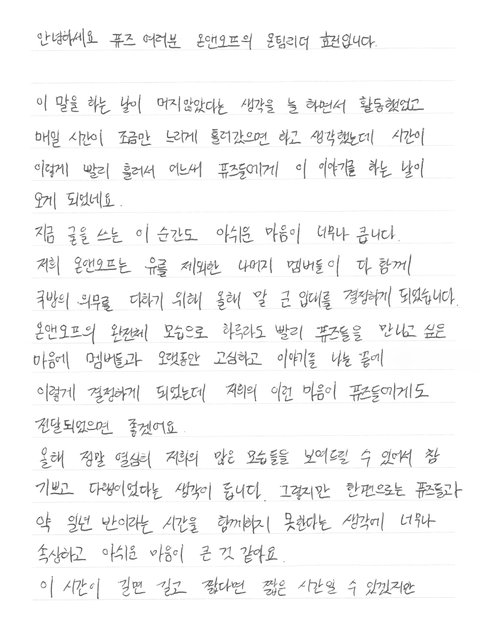 안녕하세요 퓨즈 여러분 온앤오프의 온팀리더 효진입니다.
이 말을 하는 날이 머지않았다는 생각을 늘 하면서 활동했었고
매일 시간이 조금만 느리게 흘러갔으면 하고 생각했는데 시간이
이렇게 빨리 흘러서 어느새 퓨즈들에게 이 이야기를 하는 날이
오게 되었네요.
지금 글을 쓰는 이 순간도 아쉬운 마음이 너무나 큽니다.
저희 온앤오프는 유를 제외한 나머지 멤버들이 다 함께
국방의 의무를 다하기 위해 올해 말 군 입대를 결정하게 되었습니다.
온앤오프의 완전체 모습으로 하루라도 빨리 퓨즈들을 만나고 싶은
마음에 멤버들과 오랫동안 고심하고 이야기를 나눈 끝에
이렇게 결정하게 되었는데 저희의 이런 마음이 퓨즈들에게도
전달되었으면 좋겠어요.
올해 정말 열심히 저희의 많은 모습들을 보여드릴 수 있어서 참
기쁘고 다행이었다는 생각이 듭니다. 그렇지만 한편으로는 퓨즈들과
약 일년 반이라는 시간을 함께하지 못한다는 생각에 너무나
속상하고 아쉬운 마음이 큰 것 같아요.
이 시간이 길면 길고 짧다면 짧은 시간일 수 있겠지만